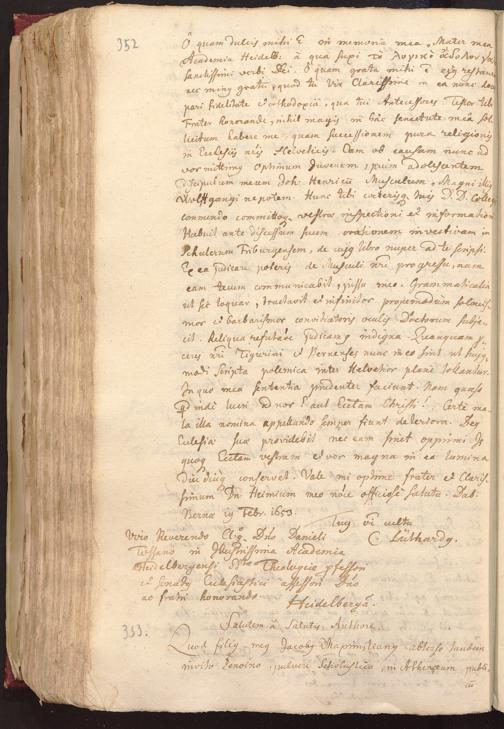 352
O quam dulcis mihi E in memoria mea Mater mea
Academia Heidelb: à qua supi τὸ λογικὸ ἄδολον γα
sanctissimi verbi Dei. O quam grata mihi è
nec minq gratu, quod tu Vir Clarissime in ea nunc doc
pari fidelitate et orthodoxia, qua tui Antecessores
Frater honorande, nihil magis in hac senectute mea sol
licitum habere me, quam successionem pura religionis
in Ecclesiis Helveticis. Eam ob causam nunc ad
vos mittimq optimum Juvenem, pium adolescentem
discipulum meum Joh. Henricu Musculum, Magni illiq
Wolffgangi nepotem. Hunc tibi Dnis D. D. Colleg
commendo committoq, vestræ inspectioni et information
Habuit ante discessum suum orationem invectivam in
Schulerum Friburgensem, de cuiq libro nuper ad te scripsi.
Ex ea judicare poteris de Musculi nri progressu, nam
eam tecum communicabit, jussu meo. Grammaticalia
ut sic loquar, tractavit et infinitos propemodum solœcis
mos et barbarismos convitiatoris oculis Doctorum subje
cit. Reliqua refutaōe judicans indigna. Quanquam
ceris nri Tigurini et Bernenses nunc in eo sint ut hujq
modi scripta polemica inter Helvetios plane tollantur.
In quo mea sententia prudenter faciunt. Nam quæso
qd indi lucri ad nos è aut Ecctam Christi! Certe ma
la illa nomina appellando semper fiunt deteriora. Deq
Ecclesiæ suæ providebit nec eam sinet opprimi. Is
quoq Ecctam vestram et vos magna in ea lumina
diu diuq conservet. Vale mi optime frater et Claris
simum Dn Heimium meo noīe officiose saluta. Dab.
Bernæ 19 Febr. 1653.
Tuq
C. Lüthardq.
Viro Reverendo Clq. Dno Danieli
Tossano in Illustrissima Academia
Heidelbergensi Theologiæ pfessori
et Senatq Ecclesiastici assessori Dno
ac fratri honorando.
Heidelbergā.
353.
Salutem à Salutis Authore.
Quod filiq meq Jacobq
invito pulvere Scholastico, in Athenæum publi